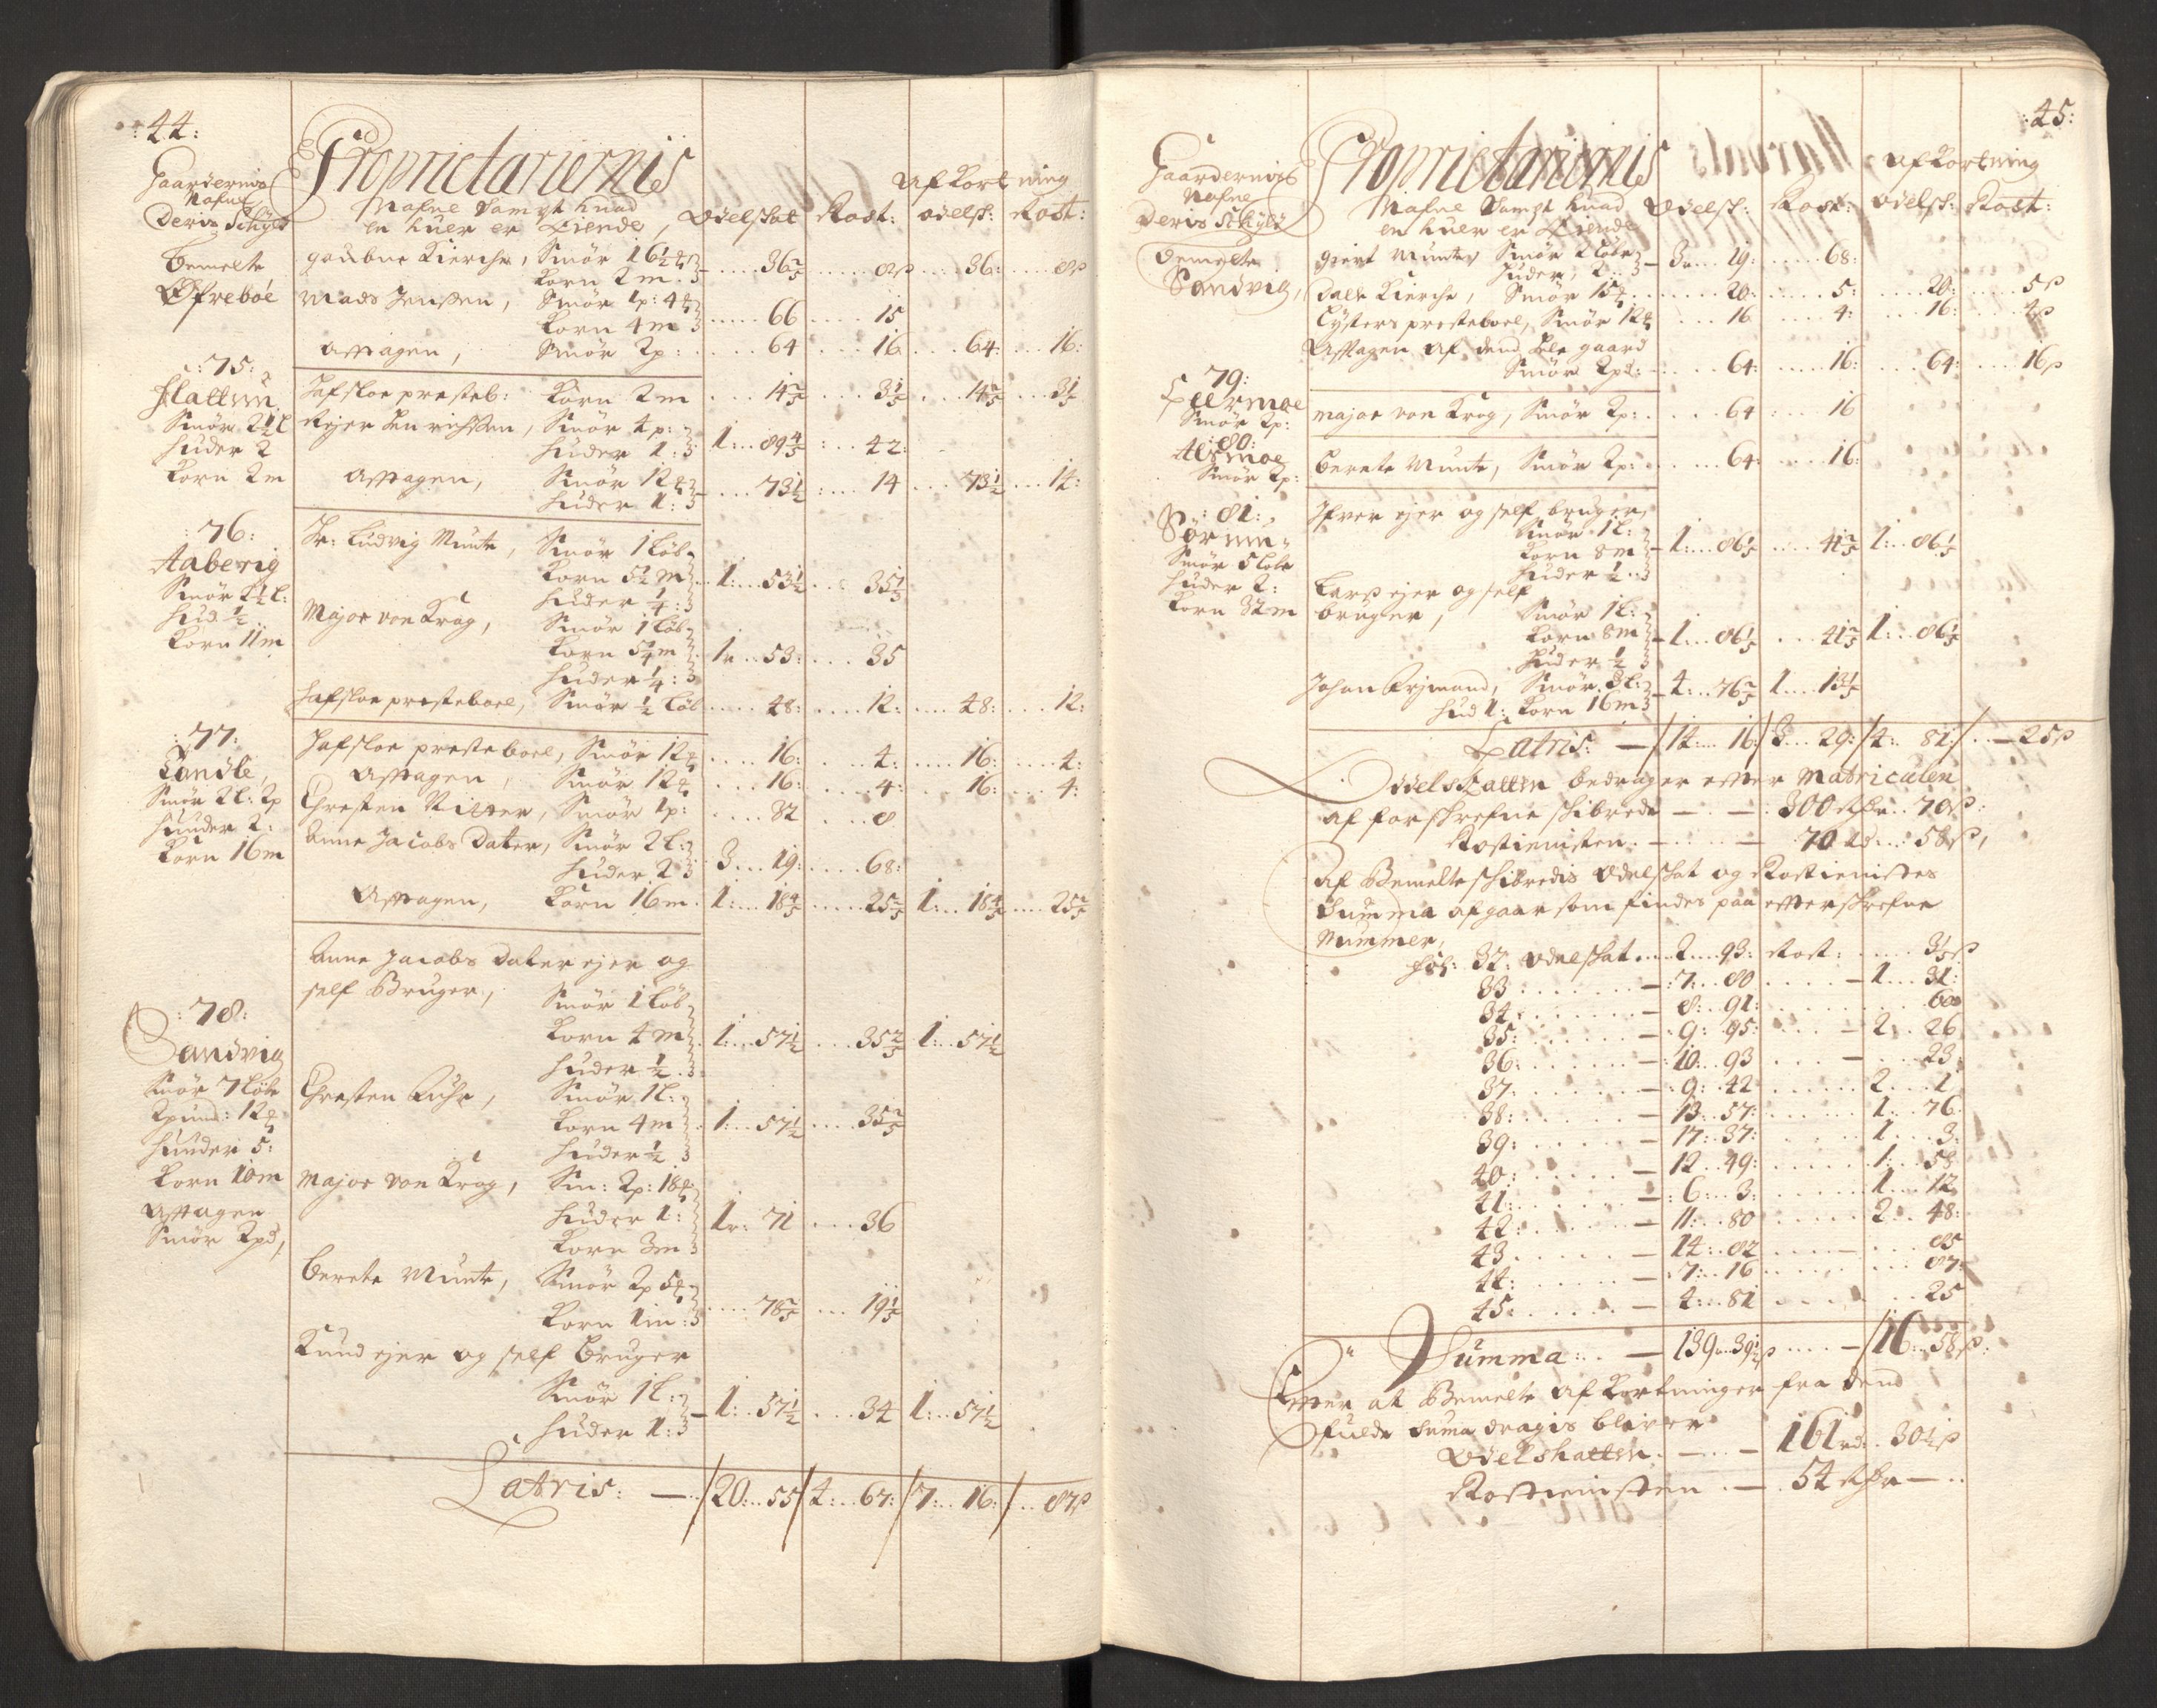 :44:
Gaardernis Nafne Deris Schyld
Proprietariernis
Nafne Sampt huad en huer er Eiende, Odelskat Rost: Afkortning odelsk: Rost:
Bemelte Øfrebøe
gaubne Kierche, Smör 16½ # Korn 2 m. 36⅖ 8 ß 36: 8 ß
Mads Jenssen, Smör 1p: 4 # Korn 4 m 66 15
Aftagen, Smör 2p: 64 16 64: 16:
:75:
Flatten Smör 2½ l Huder 2 Korn 2 m
Hafsloe presteb: Korn 2 m 14⅖ 3⅕ 14⅖ 3⅕
Rejer Henrichssen, Smör 4p: Huder 1: 1: 89⅘ 42:
Aftagen, Smör 12 # Huder 1: 73½ 14 73½ 14:
:76:
Aaberig Smör 2½ l: Hud ½ Korn 11 m
Hr: Ludvig Munte, Smör 1 Löb Korn 5½ m Huder ¼: 1: 53½ 35⅓
Major von Krag, Smör 1 Löb Korn 5¼ m Huder ¼: 1r 53: 35
Hafsloe presteboel, Smör ½ Löb 48: 12: 48: 12:
:77:
Sandle, Smör 2l: 2p Huuder 2: Korn 16 m
Hafsloe presteboel, Smör 12 # 16: 4: 16: 4:
Aftagen, Smör 12 # 16: 4: 16: 4:
Chresten Ritter, Smör 1p: 32 8
Anne Jacobs Dater, Smör 2l: Huder 2 3 19: 68:
Aftagen, Korn 16 m. 1: 18⅘ 25⅖ 1: 18⅘ 25⅖
:78:
Sandvig Smör 7 Löbe 2 pund: 12 # Huuder 5: Korn 10 m Aftagen Smör 2 pd,
Anne Jacobs Dater ejer og
self Bruger, Smör 1 Löb Korn 4 m Huder ½. 1: 57½ 35⅖ 1: 57½
Chresten Fuhr, Smör 1l: Korn 4 m Huder ½ 1: 57½ 35⅖
Major von Krag, Sm: 2p: 18 # Huder 1: Korn 3 m 1r: 71 36
Berete Munte, Smör 2p 5 # Korn 1 m: 78⅖ 19⅕
Knud ejer og self Bruger
Smör 1l: Huder 1: 1: 57½ 34 1: 57½
Latris: — 20: 55 4: 67: 7: 16: 87 ß
:45:
Gaardernis Nafne Deris Schyld
Proprietariernis
Nafne Sampt huad en huer er Eiende Odelsk: Rost: Afkortning odelsk: Rost:
Bemelte Sandvig,
Giert Munte Smör 2 Löbe Huder, 2 3 19: 68:
Dale Kierche, Smör 15 # 20: 5: 20: 5 ß
Lysters presteboel, Smör 12 # 16 4: 16: 4 ß
Aftagen af dend hele gaard
Smör 2 pd: 64: 16: 64: 16 ß
79:
Leermoe Smör 2p:
major von Krog, Smör 2p: 64 16
:80:
Alsmoe Smör 2p:
Berete Munte, Smör 2p: 64: 16:
:81:
Sörum: Smör 5 Löbe Huder 2: Korn 32 m
Ifver ejer og self bruger,
Smör 1l: Korn 8 m Huder ½: 1: 86⅕ 41⅖ 1: 86⅕
Lars ejer og self
bruger, Smör 1l: Korn 8 m Huder ½ 1: 86⅕ 41⅖ 1: 86⅕
Johan Fejmand, Smör 3l: Hud 1: Korn 16 m 4: 76⅖ 1 13⅕
Latris: — 14: 16: 3 29: 4: 81: — 25 ß
Odelskatten bedrager efter Matriculen
af forschrefne schibrede — 300 Rdr 70 ß:
Rostienisten — 70 rd: 58 ß,
Af Bemelte schibredis Odelskat og Rostienistes
Summa afgaar som findes paa efterschrefne
Nummer,
fol: 32: odelskat 2 93: Rost: 3⅕ ß
33 — 7: 80 — 1 31:
34: — 8: 91: 60
35: — 9: 95: — 2 26
36: — 10: 93 — 23:
37. — 9: 42 2 1
38: — 13: 57: 1: 76:
39: — 17: 37: 1 3:
40: — 12 49: 1: 58
41: — 6: 3: 1 12
42: — 11: 80 2 48:
43 — 14: 82 85
44: — 7: 16 87:
45: — 4: 81 25
Summa: — 139 39½ ß — 16: 58 ß:
Efter at Bemelte Afkortninger fra dend
fulde Suma dragis blifver
Odelskatten. — 161 rd: 30½ ß
Rostienisten — 54 Rdr —